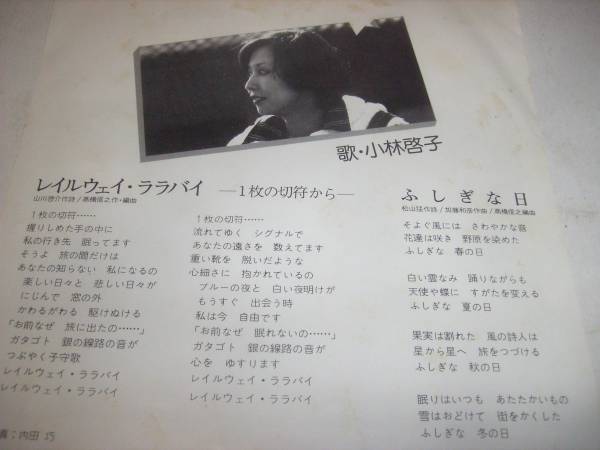 歌・小林啓子
レイルウェイ・ララバイ ―1枚の切符から―
山川啓介作詩/高橋信之作・編曲
1枚の切符……
握りしめた手の中に
私の行き先　眠ってます
そうよ　旅の間だけは
あなたの知らない　私になるの
楽しい日々と　悲しい日々が
にじんで　窓の外
かわるがわる　駆けぬける
「お前なぜ　旅に出たの……」
ガタゴト　銀の線路の音が
つぶやく子守歌
レイルウェイ・ララバイ
レイルウェイ・ララバイ
1枚の切符……
流れてゆく　シグナルで
あなたの遠さを　数えてます
重い靴を　脱いだような
心細さに　抱かれているの
ブルーの夜と　白い夜明けが
もうすぐ　出会う時
私は今　自由です
「お前なぜ　眠れないの……」
ガタゴト　銀の線路の音が
心を　ゆすります
レイルウェイ・ララバイ
レイルウェイ・ララバイ
ふしぎな日
松山猛作詩/加藤和彦作曲/高橋信之編曲
そよぐ風には　さわやかな音
花達は咲き　野原を染めた
ふしぎな　春の日
白い雲なみ　踊りながらも
天使や蝶に　すがたを変える
ふしぎな　夏の日
果実は割れた　風の詩人は
星から星へ　旅をつづける
ふしぎな　秋の日
眠りはいつも　あたたかいもの
雪はおどけて　街をかくした
ふしぎな　冬の日
真；内田　巧